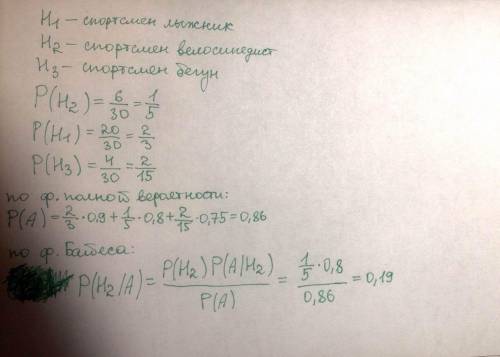 H₁ – спортсмен лыжник
H₂ – спортсмен велосипедист
H₃ – спортсмен бегун
P(H₂) = 6/30 = 1/5
P(H₁) = 20/30 = 2/3
P(H₃) = 4/30 = 2/15
по ф. полной вероятности:
P(A) = 2/3 · 0.9 + 1/5 · 0,8 + 2/15 · 0,75 = 0,86
по ф. Байеса:
P(H₂/A) = P(H₂) P(A/H₂) / P(A) = 1/5 · 0,8 / 0,86 = 0,19